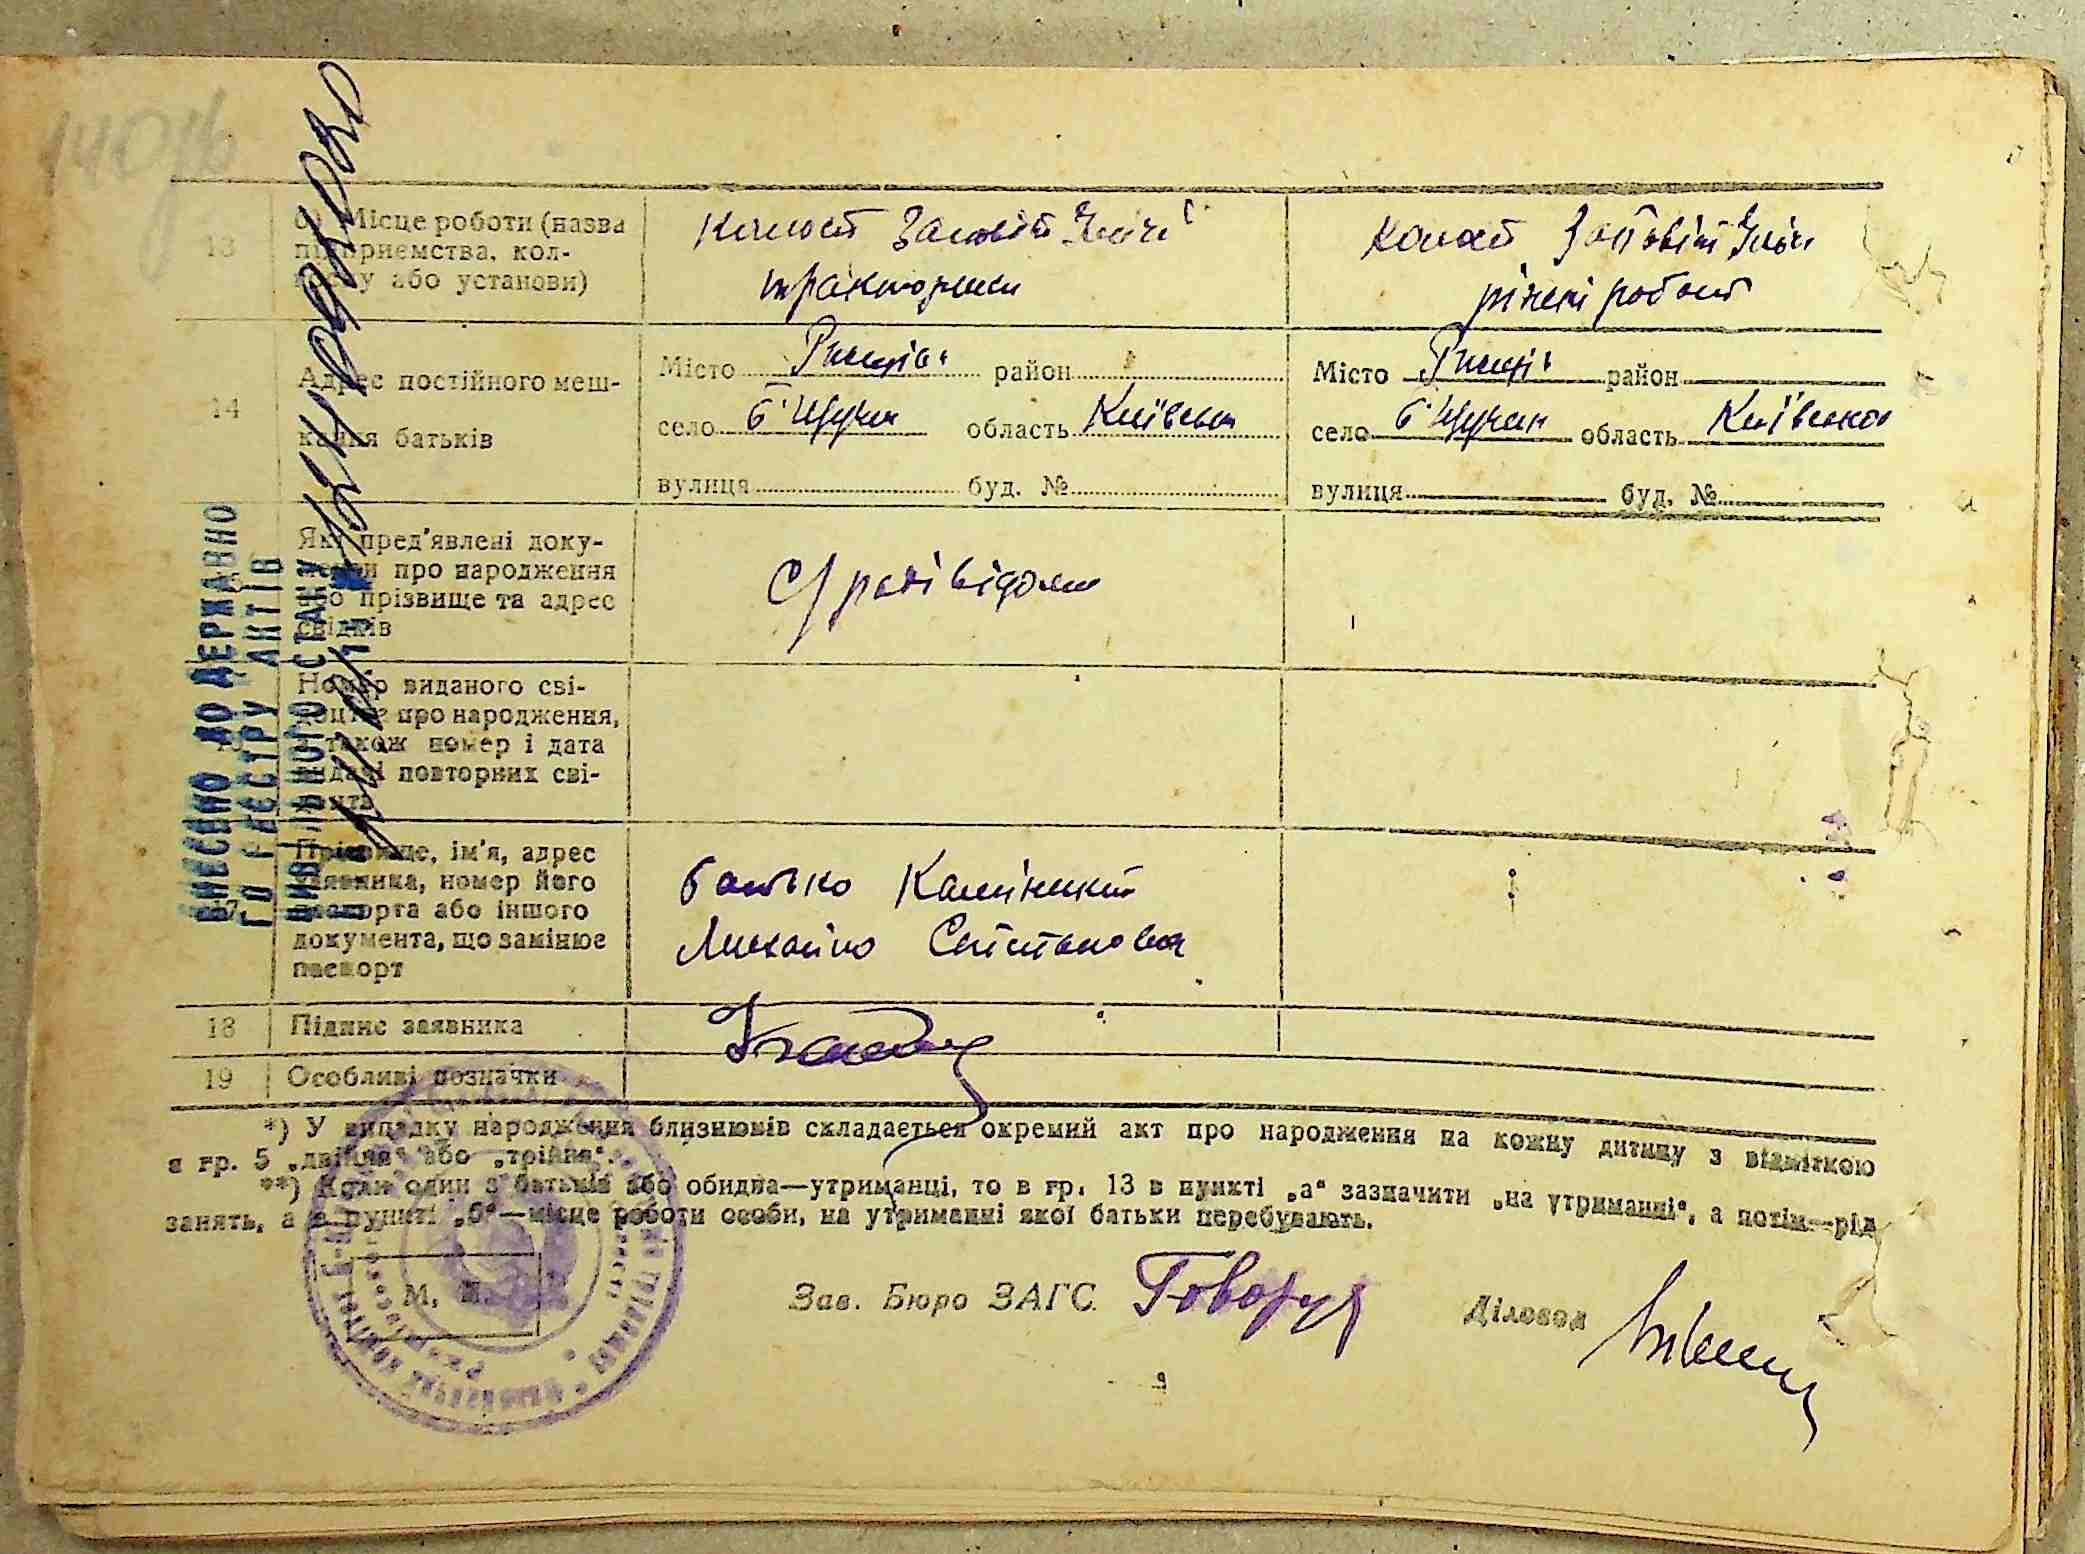 140
13
б) Місце роботи (назва
підприємства, кол-
госпу або установи)
Колгосп Заповіт Ілліча
тракторист
Колгосп Заповіт Ілліча
різні роботи
14
Адрес постійного меш-
кання батьків
Місто Ржищів район
село Б Щучин область Київська
вулиця буд. №
Місто Ржищів район
село Б Щучин область Київська
вулиця буд. №
Які пред'явлені доку-
менти про народження
або прізвище та адрес
свідків
с/ради відом
Номер виданого сві-
доцтва про народження,
а також номер і дата
видачі повторних сві-
доцтв
17
Прізвище, ім'я, адрес
заявника, номер його
паспорта або іншого
документа, що замінює
паспорт
батько
Михайло Степанович
18
Підпис заявника
19
Особливі позначки
*) У випадку народження близнюків складається окремий акт про народження на кожну дитину з відміткою
в гр. 5 „двійня" або „трійня".
**) Коли один з батьків або обидва—утриманці, то в гр. 13 в пункті „а" зазначити „на утриманні", а потім—рід
занять, а в пункті „б"—місце роботи особи, на утриманні якої батьки перебувають.
М. П.
Зав. Бюро ЗАГС
Діловод
ВНЕСЕНО ДО ДЕРЖАВНО
ГО РЕЄСТРУ АКТІВ
ЦИВІЛЬНОГО СТАНУ